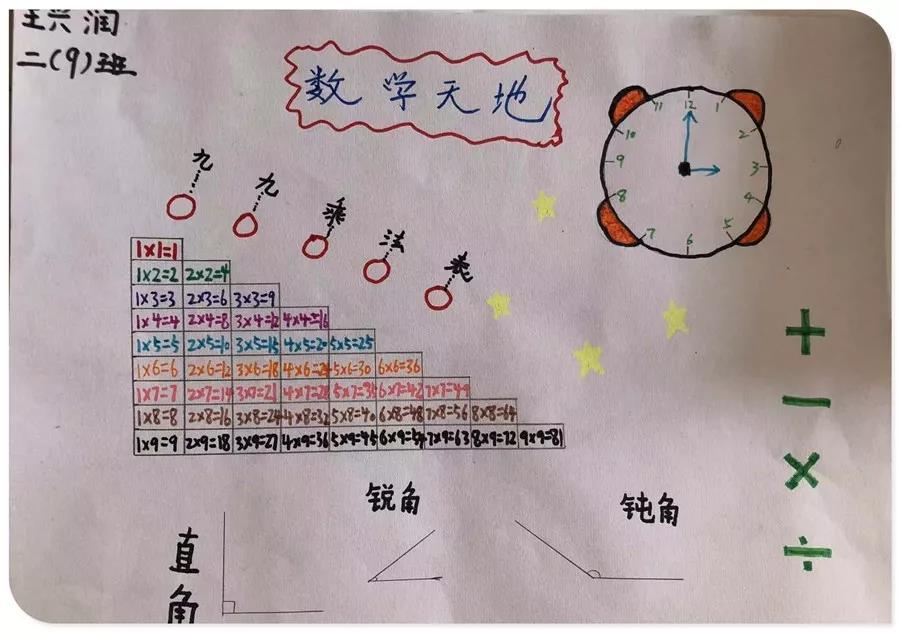 王兴润
二(9)班
数学天地
九九乘法表
12
1
2
3
4
5
6
7
8
9
10
11
1×1=1
1×2=2 2×2=4
1×3=3 2×3=6 3×3=9
1×4=4 2×4=8 3×4=12 4×4=16
1×5=5 2×5=10 3×5=15 4×5=20 5×5=25
1×6=6 2×6=12 3×6=18 4×6=24 5×6=30 6×6=36
1×7=7 2×7=14 3×7=21 4×7=28 5×7=35 6×7=42 7×7=49
1×8=8 2×8=16 3×8=24 4×8=32 5×8=40 6×8=48 7×8=56 8×8=64
1×9=9 2×9=18 3×9=27 4×9=36 5×9=45 6×9=54 7×9=63 8×9=72 9×9=81
+
−
×
÷
直角
锐角
钝角